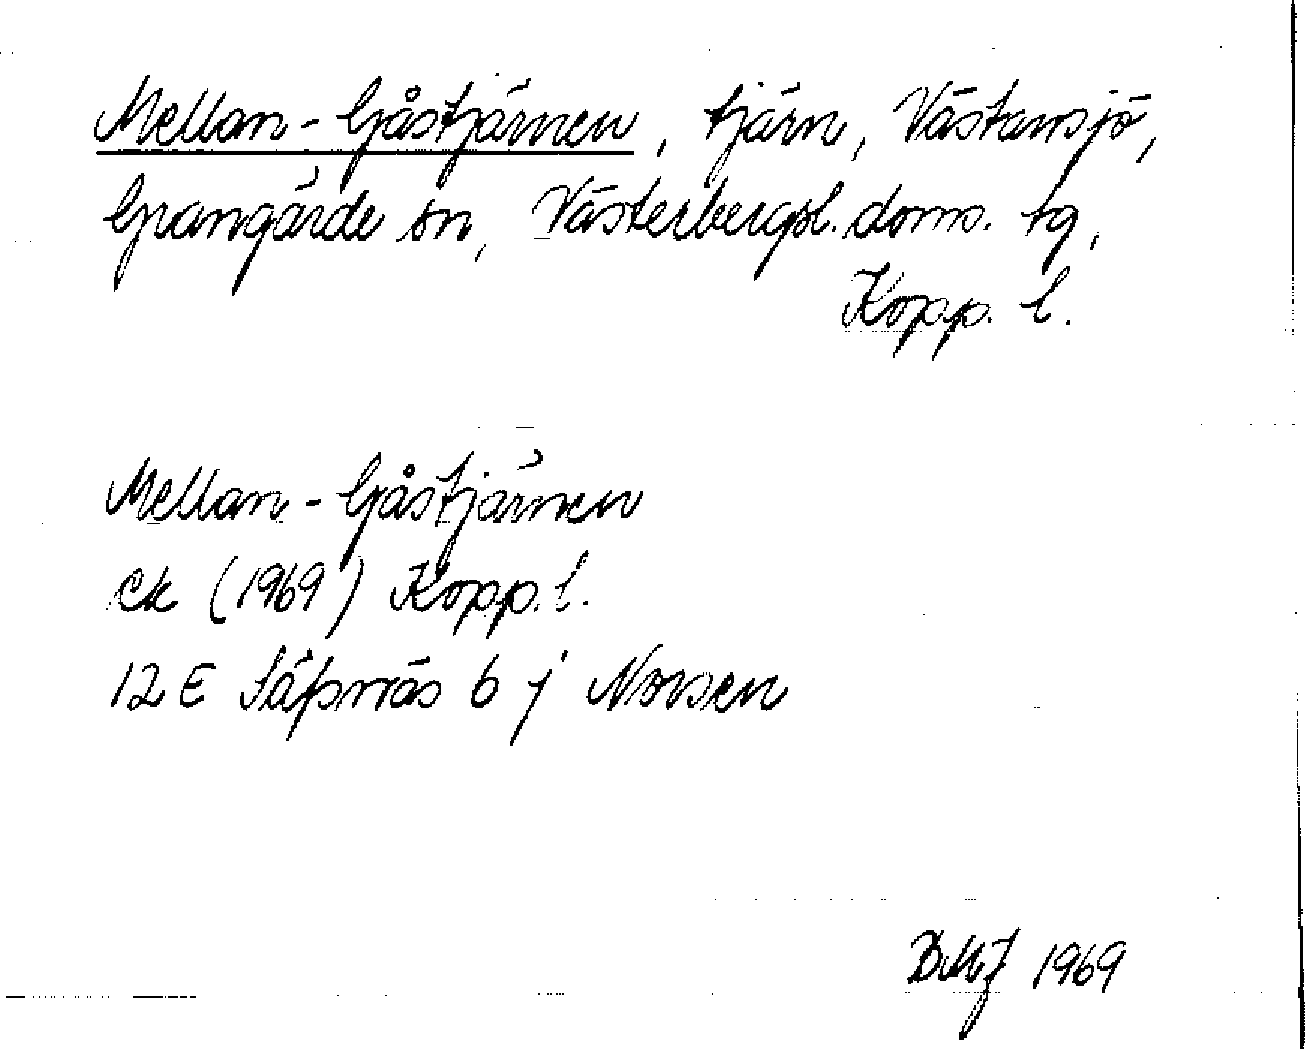 Mellan-Gåstjärnen, tjärn, Västansjö,
Grangärde sn, Västerbergsl. doms. tg,
Kopp. l.
Mellan-Gåstjärnen
ek (1969) Kopp. l.
12 E Säfsnäs 6 j Norsen
BMJ 1969